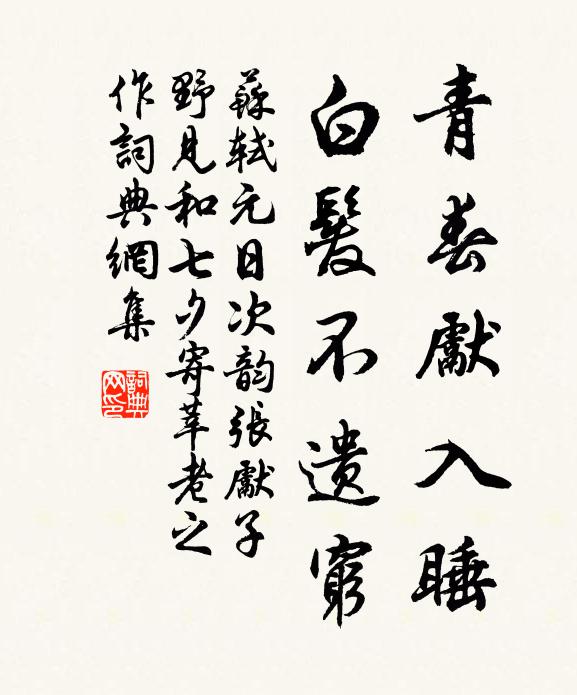 青春獻入睡
白髮不遺窮
蘇軾元日次韵張獻子
野見和七夕寄莘老之
作詞典網集
詞典网印